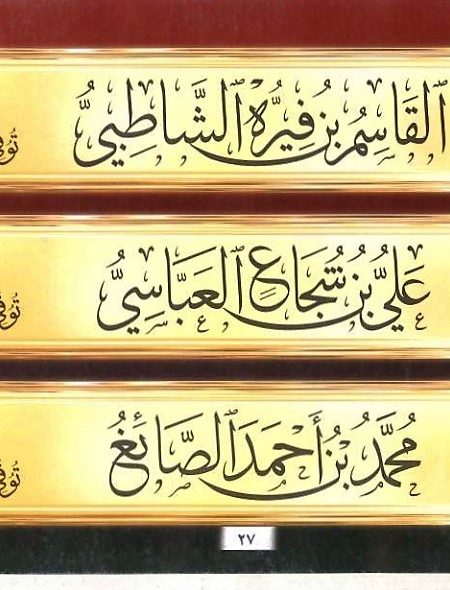 القَاسِمُ بْنُ فِيرُّهْ الشَّاطِبِيُّ
عَلِيُّ بْنُ شُجَاعٍ العَبَّاسِيُّ
مُحَمَّدُ بْنُ أَحْمَدَ الصَّائِغُ
٢٧